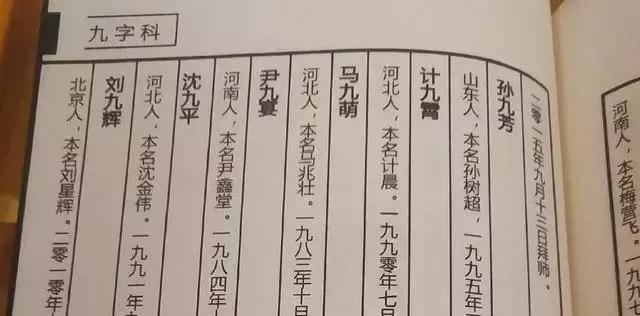 九字科
二零一五年九月十三日拜师。
孙九芳
山东人，本名孙树超，一九九五年
计九霄
河北人，本名计晨。一九九零年七月
马九萌
河北人，本名马兆壮。一九八三年十日
尹九宴
河南人，本名尹鑫堂。一九八四年
沈九平
河北人，本名沈金伟。一九九一年
刘九辉
北京人，本名刘星辉。二零一零年
河南人，本名梅营飞。一九九